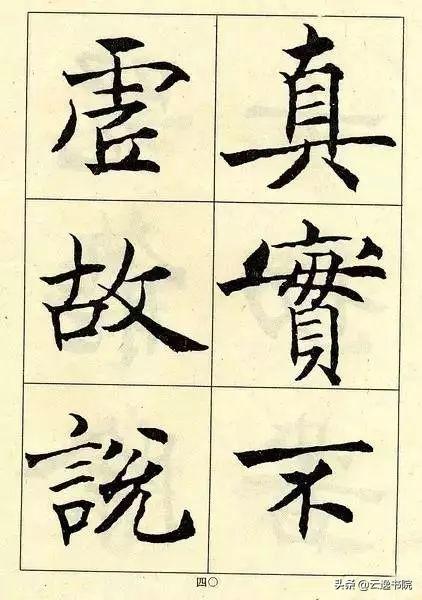 真實不
虛故說
四〇
头条@云逸书院